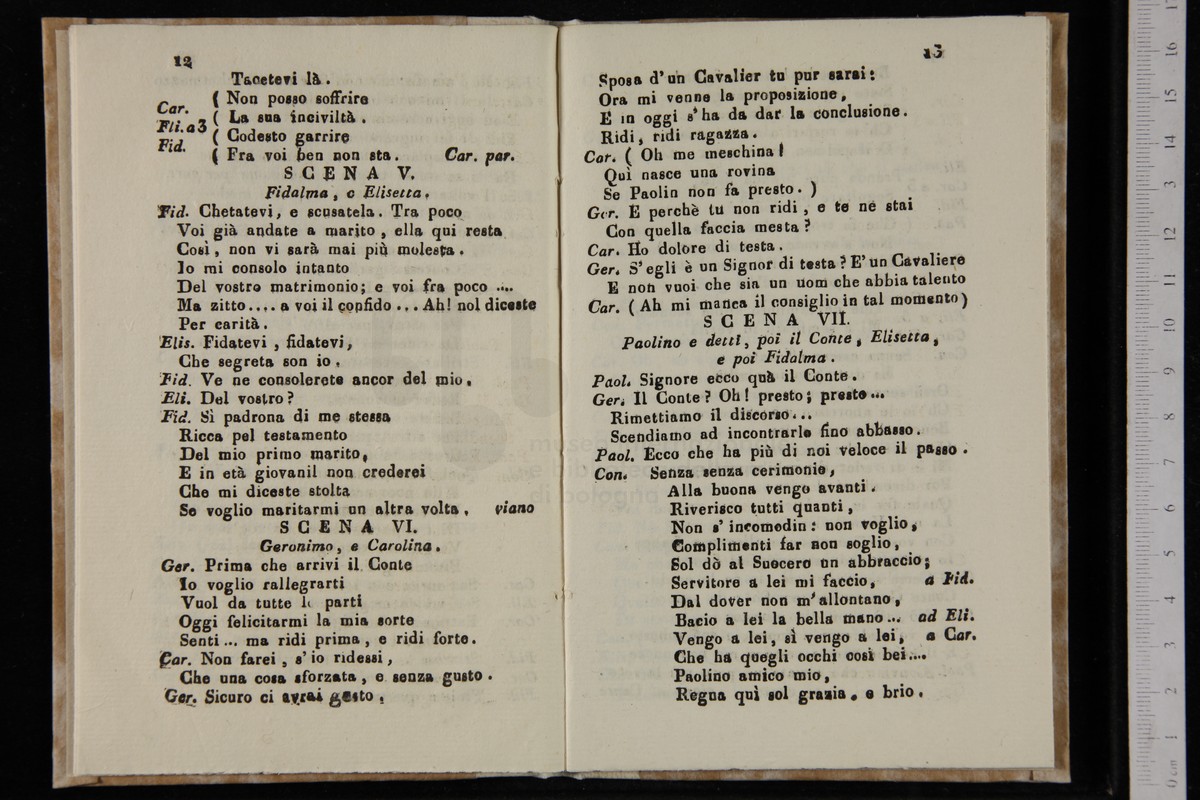 12
Tacetevi là.
( Non posso soffrire
Car. ( La sua inciviltà.
Eli. a 3 ( Codesto garrire
Fid. ( Fra voi ben non sta. Car. par.
SCENA V.
Fidalma, e Elisetta.
Fid. Chetatevi, e scusatela. Tra poco
Voi già andate a marito, ella qui resta
Così, non vi sarà mai più molesta.
Io mi consolo intanto
Del vostro matrimonio; e voi fra poco ....
Ma zitto.... a voi il confido ... Ah! nol diceste
Per carità.
Elis. Fidatevi, fidatevi,
Che segreta son io,
Fid. Ve ne consolerete ancor del mio.
Eli. Del vostro?
Fid. Sì padrona di me stessa
Ricca pel testamento
Del mio primo marito,
E in età giovanil non crederei
Che mi diceste stolta
Se voglio maritarmi un altra volta. viano
SCENA VI.
Geronimo, e Carolina.
Ger. Prima che arrivi il Conte
Io voglio rallegrarti
Vuol da tutte le parti
Oggi felicitarmi la mia sorte
Senti... ma ridi prima, e ridi forte.
Car. Non farei, s'io ridessi,
Che una cosa sforzata, e senza gusto.
Ger. Sicuro ci avrai gusto,
13
Sposa d'un Cavalier tu pur sarai:
Ora mi venne la proposizione,
E in oggi s'ha da dar la conclusione.
Ridi, ridi ragazza.
Car. ( Oh me meschina!
Quì nasce una rovina
Se Paolin non fa presto. )
Ger. E perchè tu non ridi, e te ne stai
Con quella faccia mesta?
Car. Ho dolore di testa.
Ger. S'egli è un Signor di testa? E' un Cavaliere
E non vuoi che sia un uom che abbia talento
Car. ( Ah mi manca il consiglio in tal momento)
SCENA VII.
Paolino e detti, poi il Conte, Elisetta,
e poi Fidalma.
Paol. Signore ecco quà il Conte.
Ger. Il Conte? Oh! presto; presto...
Rimettiamo il discorso...
Scendiamo ad incontrarle fino abbasso.
Paol. Ecco che ha più di noi veloce il passo.
Con. Senza senza cerimonie,
Alla buona vengo avanti.
Riverisco tutti quanti,
Non s'incomodin: non voglio,
Complimenti far non soglio,
Sol dò al Suocero un abbraccio;
Servitore a lei mi faccio, a Fid.
Dal dover non m'allontano,
Bacio a lei la bella mano... ad Eli.
Vengo a lei, sì vengo a lei, a Car.
Che ha quegli occhi così bei....
Paolino amico mio,
Regna quì sol grazia, e brio.
museo
e biblioteca
di bologna
0 cm 1 2 3 4 5 6 7 8 9 10 11 12 13 14 15 16 17